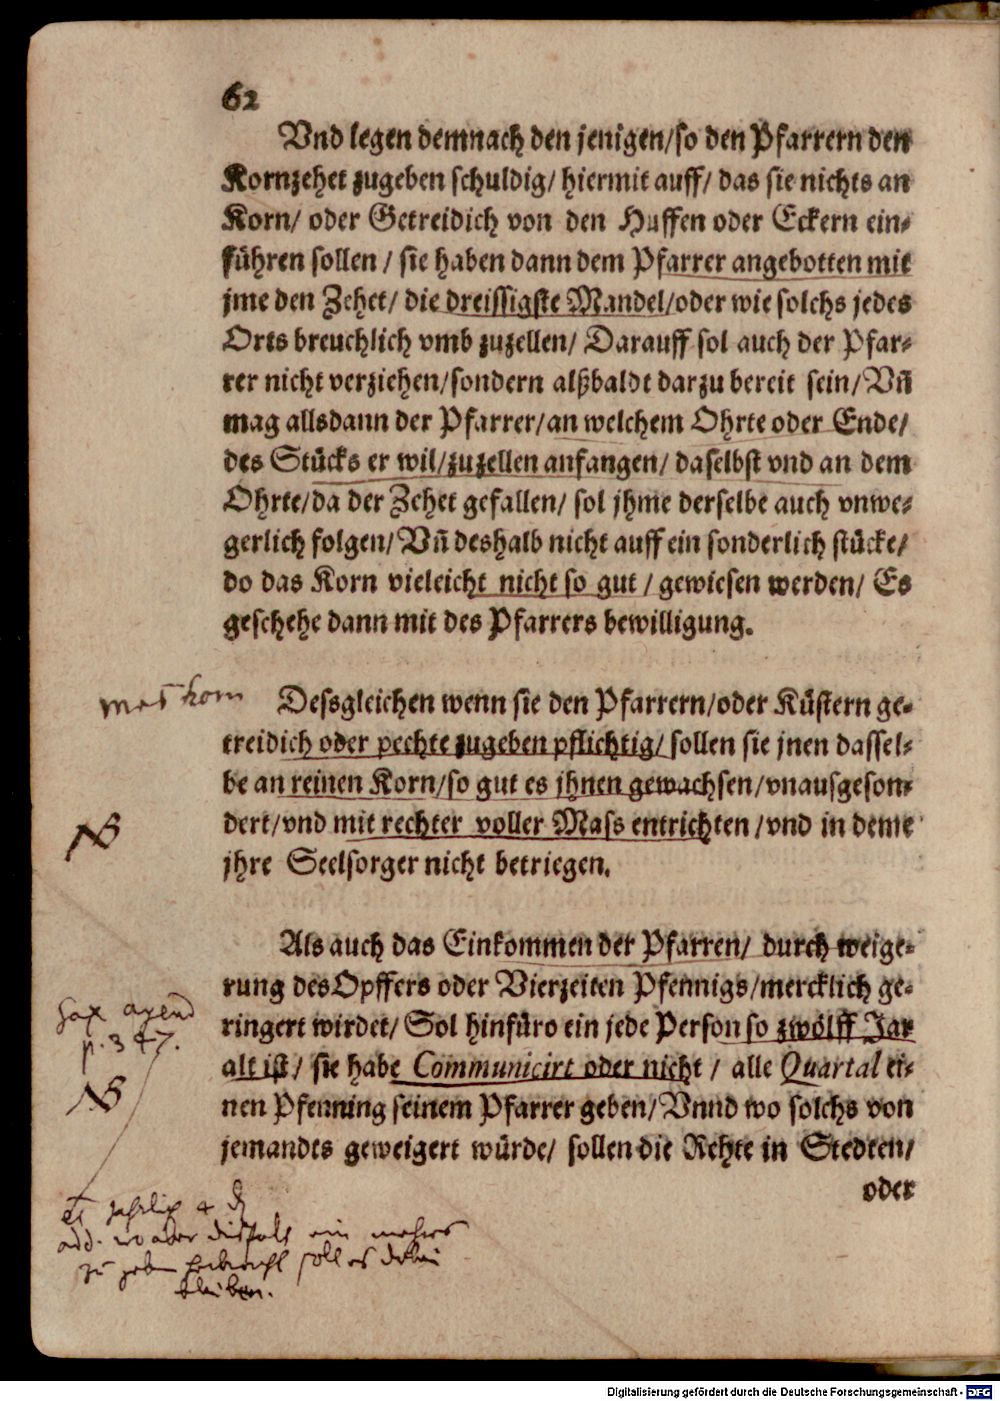 62
Vnd legen demnach den jenigen/so den Pfarrern den
Kornzehet zugeben schuldig/ hiermit auff/ das sie nichts an
Korn/ oder Getreidich von den Huffen oder Eckern ein⸗
führen sollen / sie haben dann dem Pfarrer angebotten mit
jme den Zehet/ die dreissigste Mandel/oder wie solchs jedes
Orts breuchlich vmb zuzellen/ Darauff sol auch der Pfar⸗
rer nicht verziehen/sondern alßbaldt darzu bereit sein/ Vñ
mag allsdann der Pfarrer/an welchem Ohrte oder Ende/
des Stücks er wil/zuzellen anfangen/ daselbst vnd an dem
Ohrte/da der Zehet gefallen/ sol jhme derselbe auch vnwe⸗
gerlich folgen/ Vñ deshalb nicht auff ein sonderlich stücke/
do das Korn vieleicht nicht so gut / gewiesen werden/ Es
geschehe dann mit des Pfarrers bewilligung.
korn
Dessgleichen wenn sie den Pfarrern/oder Küstern ge⸗
treidich oder pechte zugeben pflichtig/ sollen sie jnen dassel⸗
be an reinen Korn/so gut es jhnen gewachsen/vnausgeson⸗
dert/vnd mit rechter voller Mass entrichten /vnd in deme
NB
jhre Seelsorger nicht betriegen.
Als auch das Einkommen der Pfarren/ durch weige⸗
rung des Opffers oder Vierzeiten Pfennigs/mercklich ge⸗
ringert wirdet/ Sol hinfüro ein jede Person so zwölff Jar
p. 347.
alt ist/ sie habe Communicirt oder nicht / alle Quartal ei⸗
NB
nen Pfenning seinem Pfarrer geben/ Vnnd wo solchs von
jemandts geweigert würde/ sollen die Rehte in Stedten/
oder
add. wo aber ein mehres
zu geben soll es dabei
bleiben.
Digitalisierung gefördert durch die Deutsche Forschungsgemeinschaft - DFG